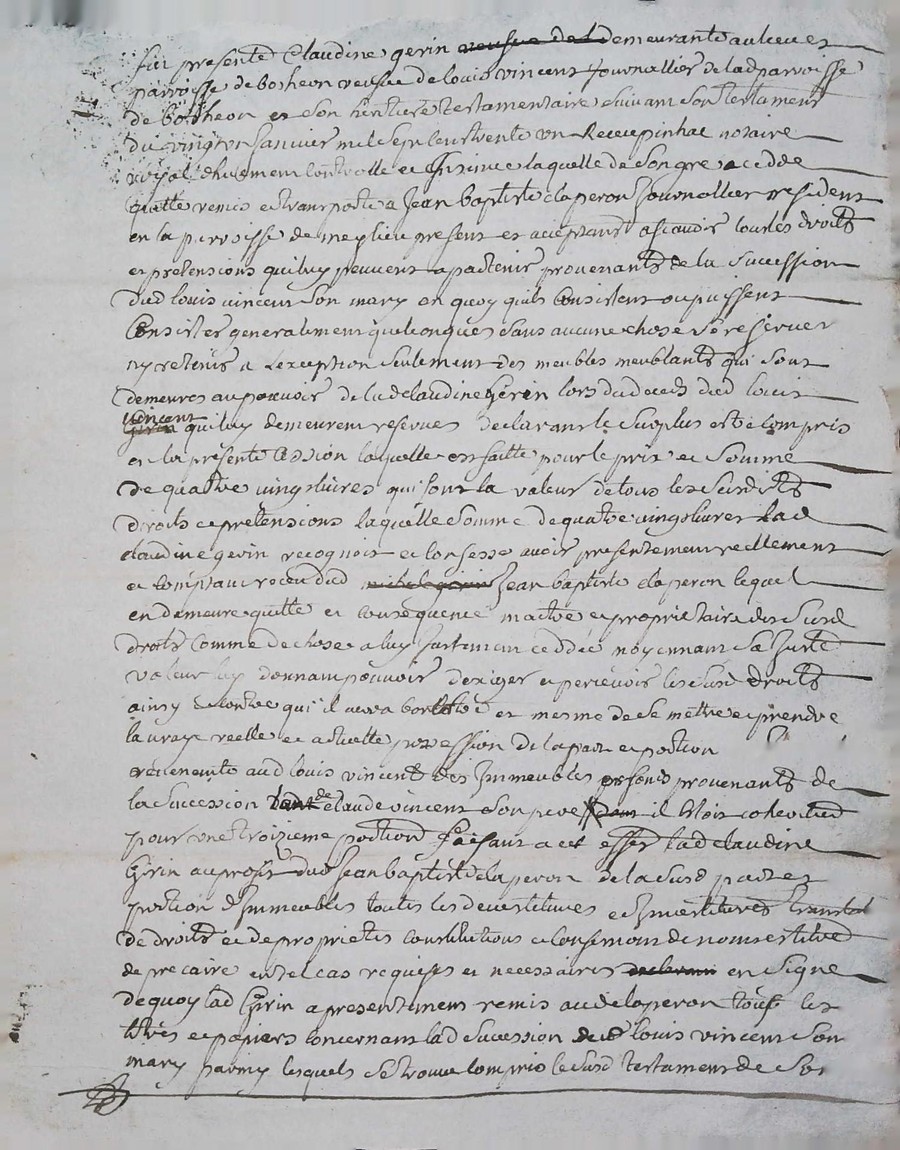 fut presente Claudine gerin veufue de L demeurante au lieu et
parroisse de botheon veufue de louis vincent Journallier de lad parroisse
de botheon et son heritiere testamentaire suivant son testament
du vingt un Janvier mil sept cent trente un Receu pinhac notaire
royal dhuement controlle et Insinue laquelle de son gre a cedde
quitte remis et transporte a Jean baptiste delaperon Journallier resident
en la parroisse de meplieu present et aceptant ascauoir tous les droits
et pretensions qui luy peuuent apartenir prouenants de la sucession
dud louis vincent son mary en quoy quils Consistent ou puissent
Consister generalement quelconques sans aucune chose se reseruer
ny retenir a Lexception seulement des meubles meublants qui sont
demeures au pouuoir de lad claudine Gerin lors du deceds dud louis
vincent
Gerin qui luy demeurent reserues declarant le surplus estre compris
en la presente Cession laquelle est faitte pour le prix et somme
de quattre vingt liures qui font la valeur de tous les susdits
droits et pretensions laquelle somme de quatre vingt liures lad
claudine gerin recognoit et confesse auoir presentement reellement
et comptant receu dud michel gerin Jean baptiste delaperon lequel
en demeure quitte et consequence maitre et proprietaire des susd
droits Comme de chose a luy justement ceddée moyennant sa juste
valeur luy donnant pouuoir dexiger et perceuoir les susd droits
ainsy et contre qui il uerra et mesme de se mettre et prendre
la uraye reelle et actuelle possession de la part et portion
reuenente aud louis vincent des Immeubles et fonds prouenants de
la sucession de claude vincent son pere dont il étoit coheritier
pour une troizieme portion faisant a cet effet lad claudine
Gerin au profit dud Jean baptiste delaperon de la susd part et
portion d'Immeubles touttes les deuestitures et Inuestitures translat
de droits et de proprietes constitutions et
de precaire en tel cas requises et necessaires declarant en signe
de quoy lad Gerin a presentement remis aud delaperon tous les
titres et papiers concernant lad sucession dud louis vincent son
mary parmy lesquels se trouue compris le susd testament de